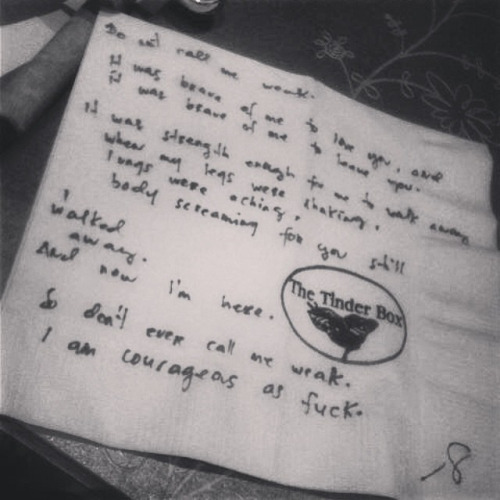 Do not call me weak.
It was brave of me to love you, and
it was brave of me to leave you.
It was strength enough for me to walk away
when my legs were shaking,
lungs were aching,
body screaming for you still
I walked
away.
And now I'm here.
The Tinder Box
So don't ever call me weak.
I am courageous as fuck.